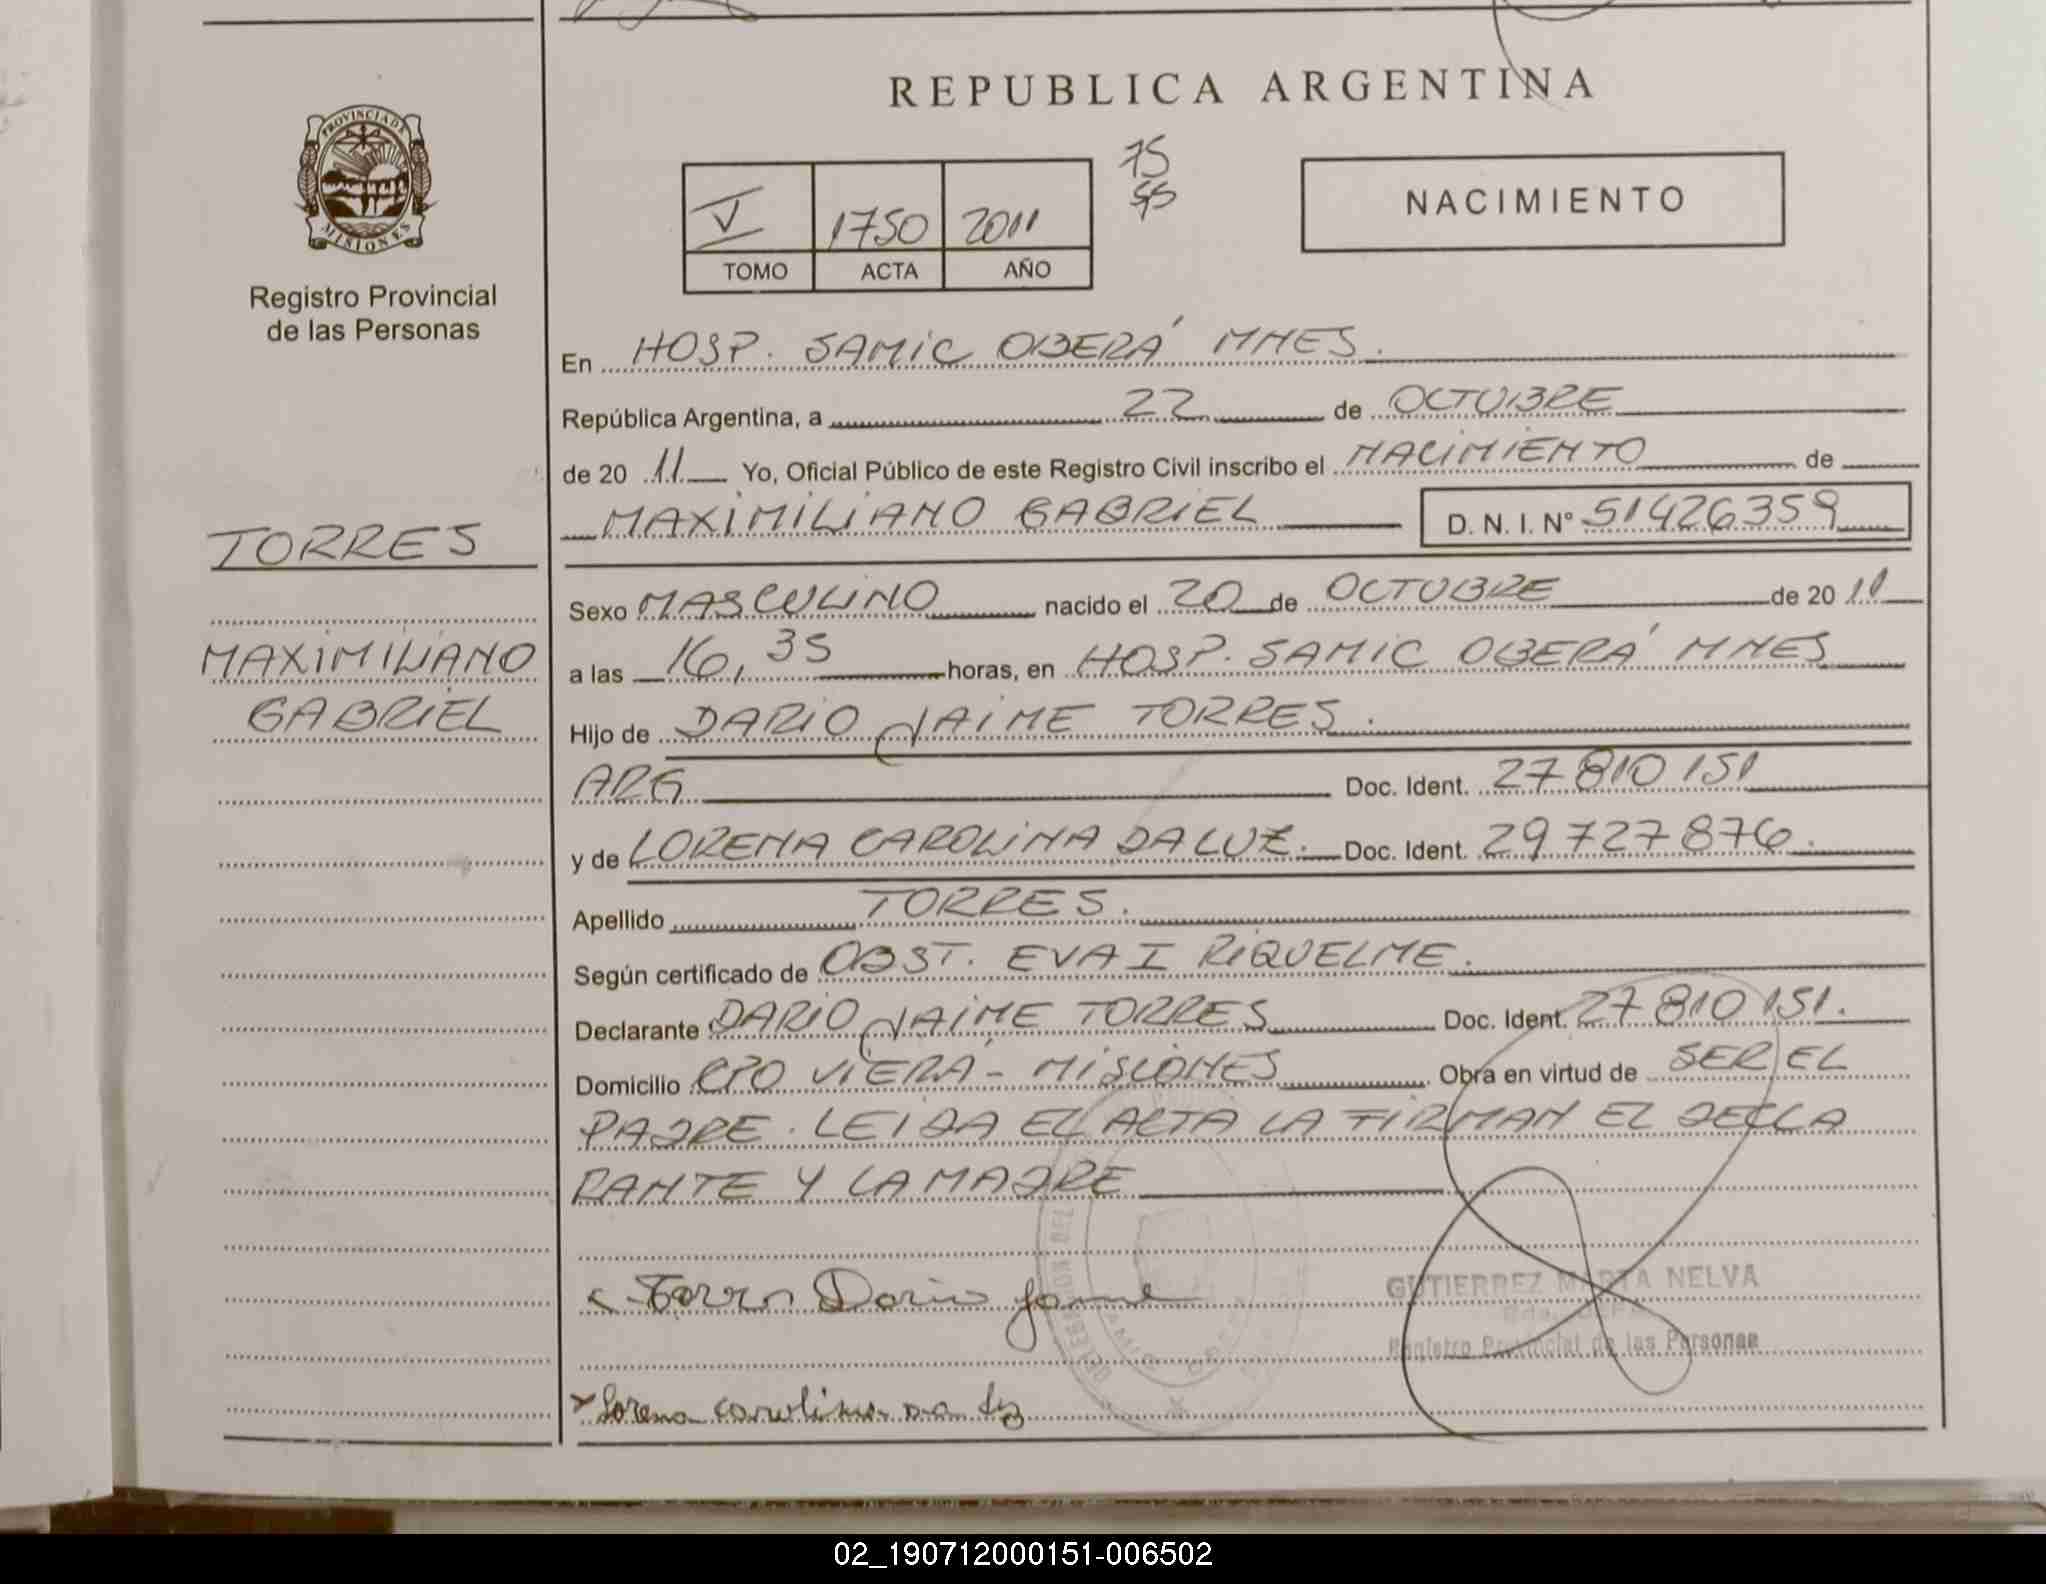 REPUBLICA ARGENTINA
PROVINCIA DE
MISIONES
Registro Provincial
de las Personas
V 1750 2011
TOMO ACTA AÑO
75
NACIMIENTO
En HOSP. SAMIC OBERÁ MNES.
República Argentina, a 22 de OCTUBRE
de 20 11 Yo, Oficial Público de este Registro Civil inscribo el NACIMIENTO de
MAXIMILIANO GABRIEL D. N. I. N° 51426359
TORRES
MAXIMILIANO
GABRIEL
Sexo MASCULINO nacido el 20 de OCTUBRE de 20 11
a las 16,35 horas, en HOSP. SAMIC OBERÁ MNES
Hijo de DARIO JAIME TORRES.
ARG Doc. Ident. 27 810 151
y de LORENA CAROLINA DA LUZ. Doc. Ident. 29 727 876.
Apellido TORRES.
Según certificado de OBST. EVA I RIQUELME.
Declarante DARIO JAIME TORRES Doc. Ident. 27 810 151.
Domicilio CPO VIERA - MISIONES Obra en virtud de SER EL
PADRE. LEIDA EL ACTA LA FIRMAN EL DECLA
RANTE Y LA MADRE
Torres Dario Jaime
GUTIERREZ MARTA NELVA
Registro Provincial de las Personas
Lorena carolina da luz
02_190712000151-006502